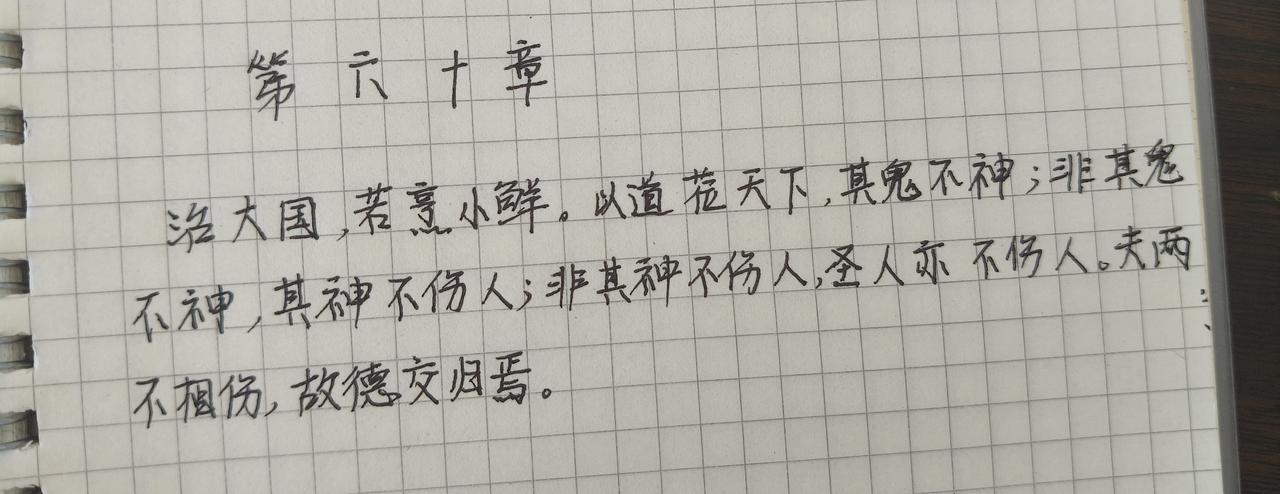 第六十章
治大国,若烹小鲜。以道莅天下,其鬼不神;非其鬼
不神,其神不伤人;非其神不伤人,圣人亦不伤人。夫两
不相伤,故德交归焉。